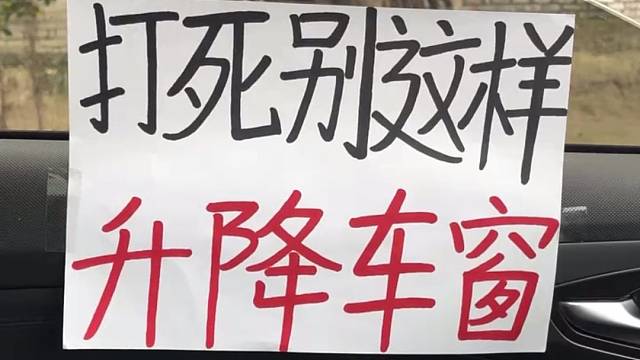 打死别这样
升降车窗